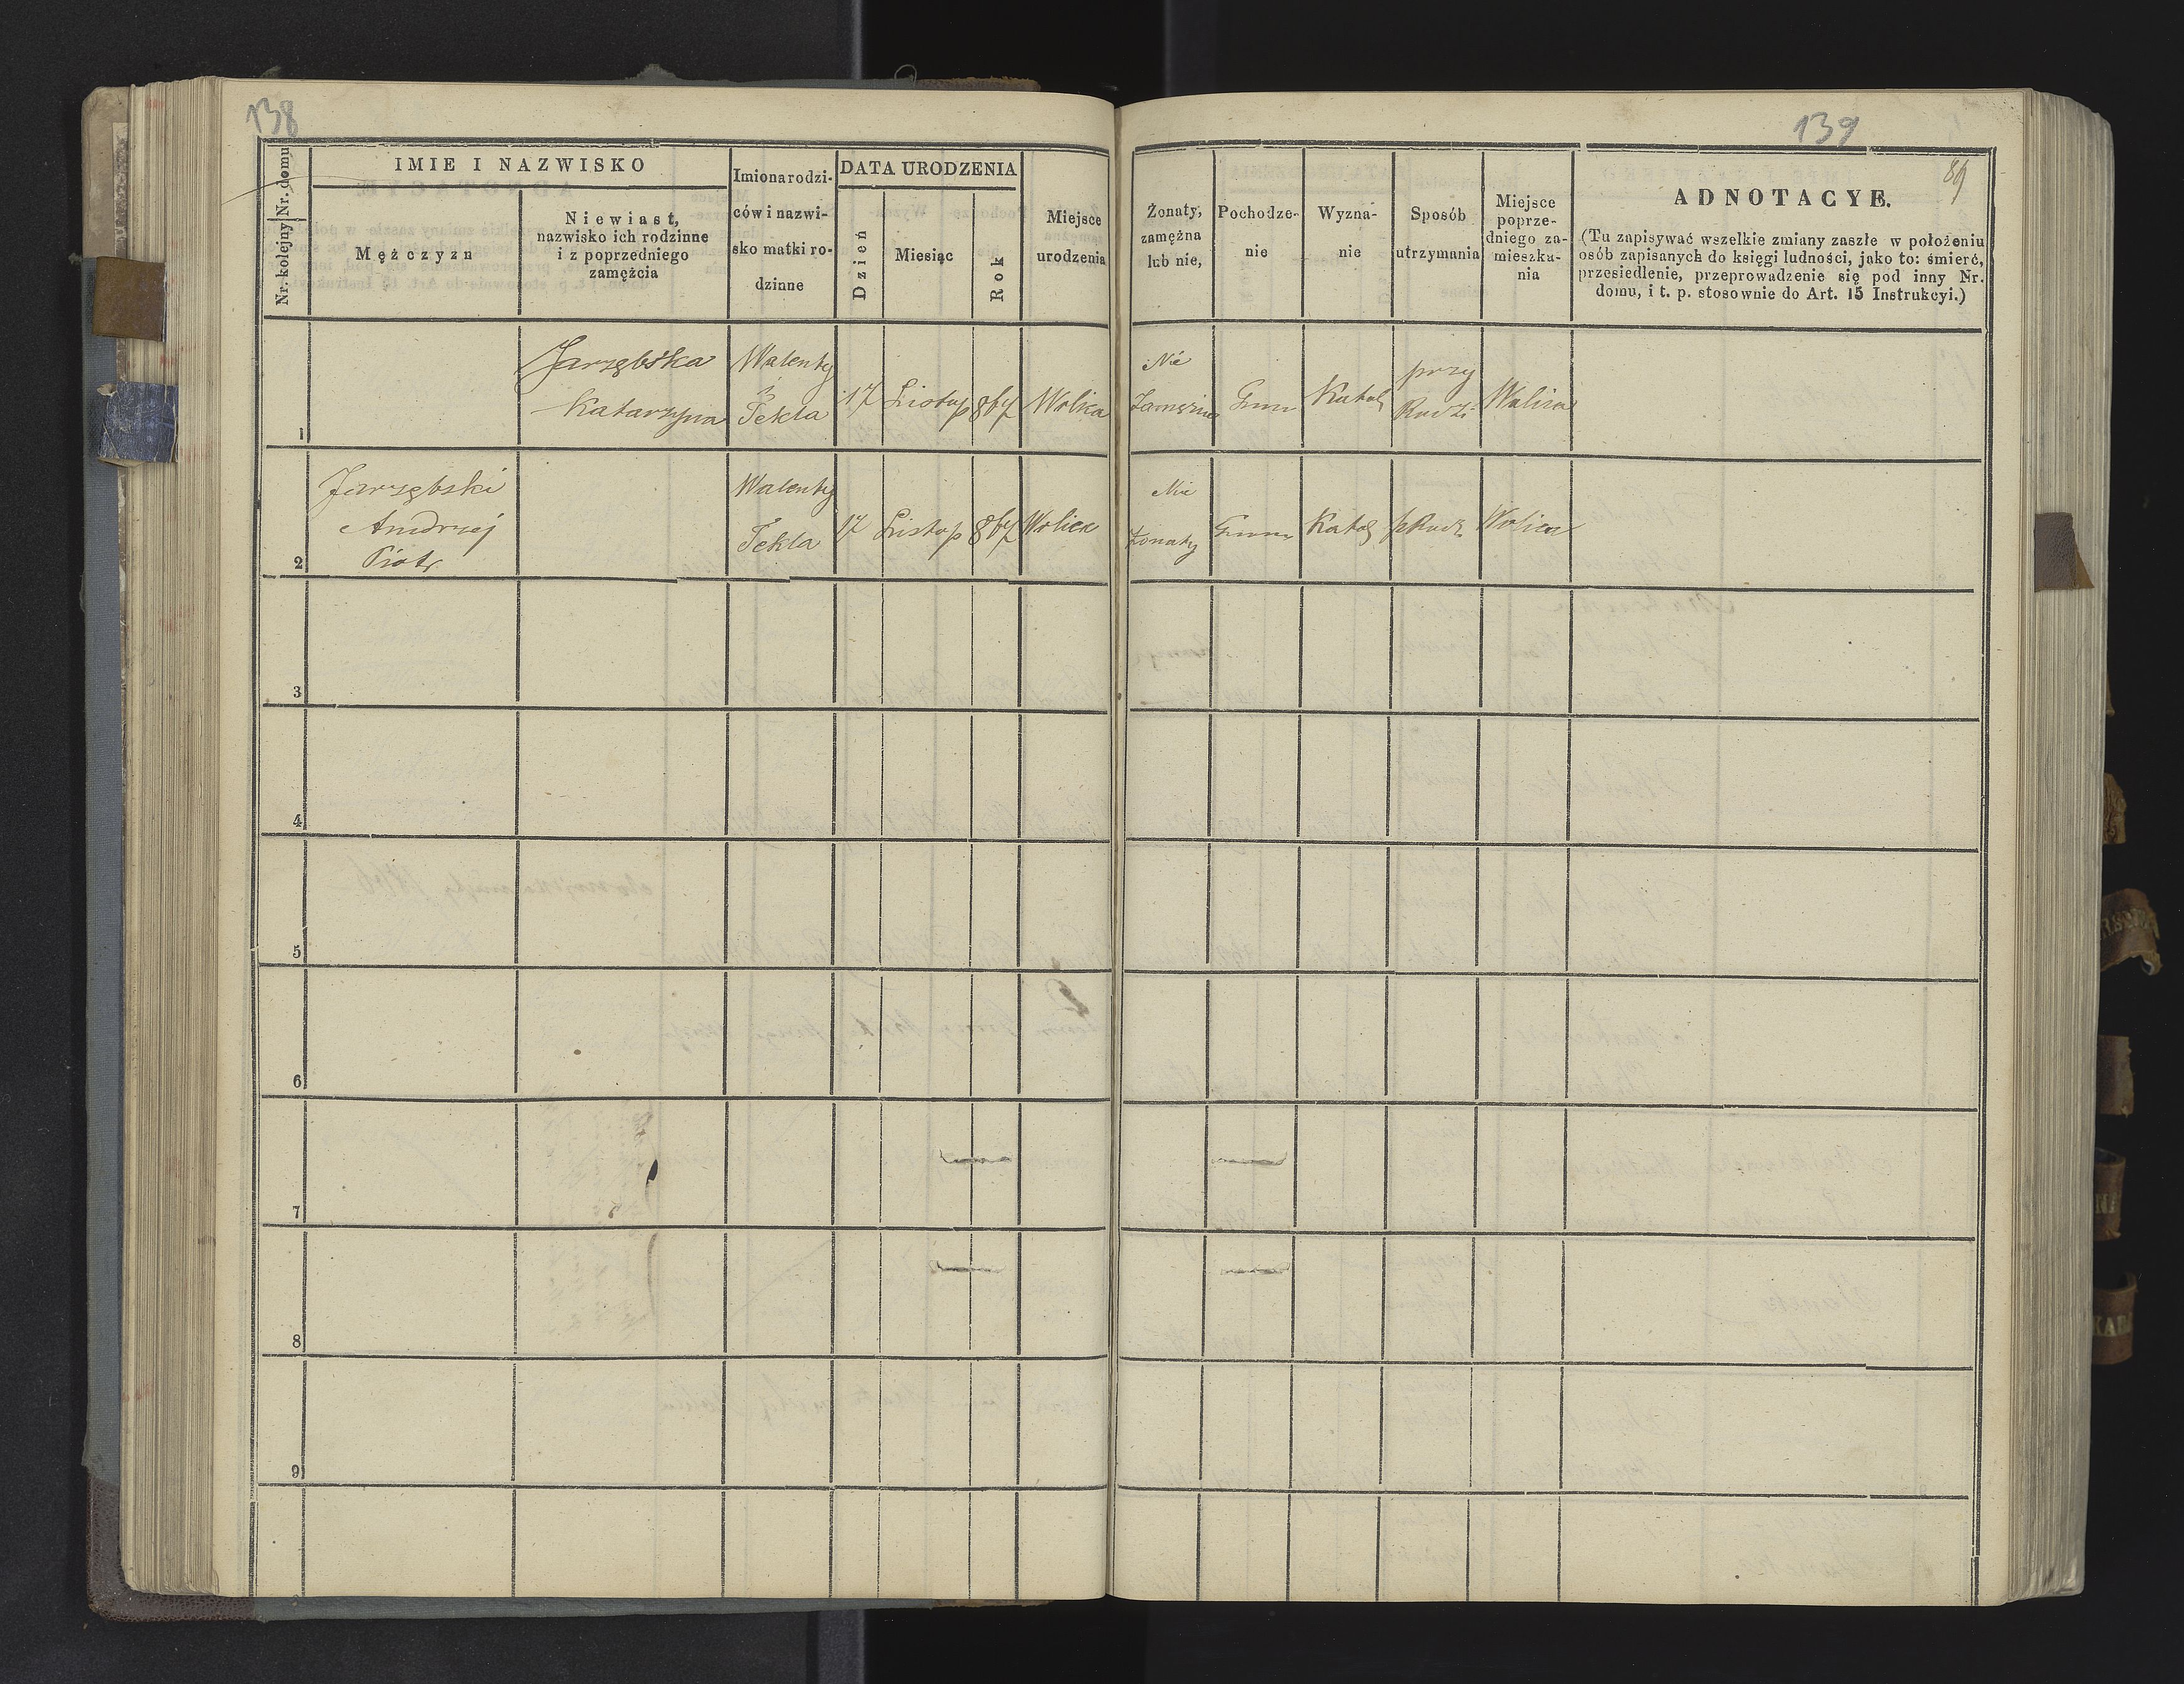 138
Nr. kolejny Nr. domu
IMIE I NAZWISKO
Mężczyzn
Niewiast,
nazwisko ich rodzinne
i z poprzedniego
zamężcia
Imiona rodzi-
ców i nazwi-
sko matki ro-
dzinne
DATA URODZENIA
Dzień
Miesiąc
Rok
Miejsce
urodzenia
1
Jarzębska
Katarzyna
Walenty
i
Tekla
17 Listop 867 Wolica
2
Jarzębski
Andrzej
Piotr
Walenty
Tekla
17 Listop 867 Wolica
3
4
5
6
7
8
9
139
89
Żonaty,
zamężna
lub nie,
Pochodze-
nie
Wyzna-
nie
Sposób
utrzymania
Miejsce
poprze-
dniego za-
mieszka-
nia
ADNOTACYE.
(Tu zapisywać wszelkie zmiany zaszłe w położeniu
osób zapisanych do księgi ludności, jako to: śmierć,
przesiedlenie, przeprowadzenie się pod inny Nr.
domu, i t. p. stosownie do Art. 15 Instrukcyi.)
Nie
Zamężna
Gmin
Katol
przy
Rodzi
Wolica
Nie
Żonaty
Gmin
Katol
p Rodz
Wolica